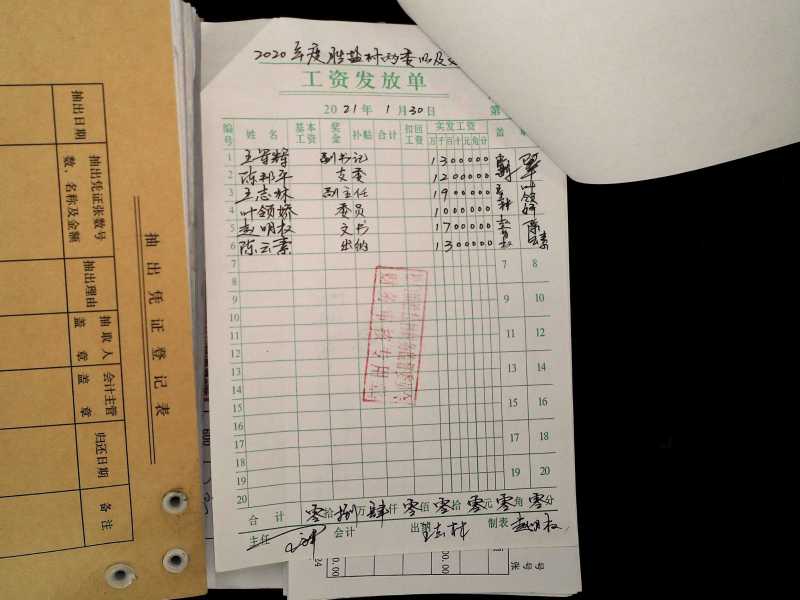 2020年度胜盐村两委
工资发放单
2021年1月30日
第
编号 姓名 基本工资 奖金 补贴 合计 扣回工资 实发工资 盖
万千百十元角分
1 副书记 1300000
2 陈邦平 支委 1200000
3 王志林 副主任 1900000
4 叶领娇 委员 1000000
5 赵明权 文书 1700000
6 陈云素 出纳 1300000
7 7 8
8
9 9 10
10
11 11 12
12
13 13 14
14
15 15 16
16
17 17 18
18
19 19 20
20
合计 零拾捌万肆仟零佰零拾零元零角零分
主任 会计 出纳 制表 赵明权
抽出凭证登记表
抽出日期
抽出凭证张数号数、名称及金额
抽出理由
抽取人盖章
会计主管盖章
归还日期
备注